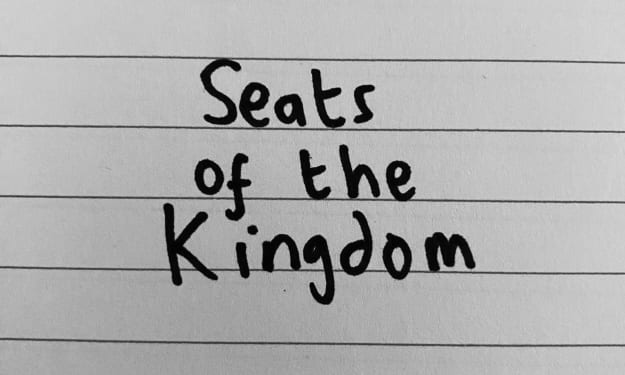 Seats
of the
Kingdom